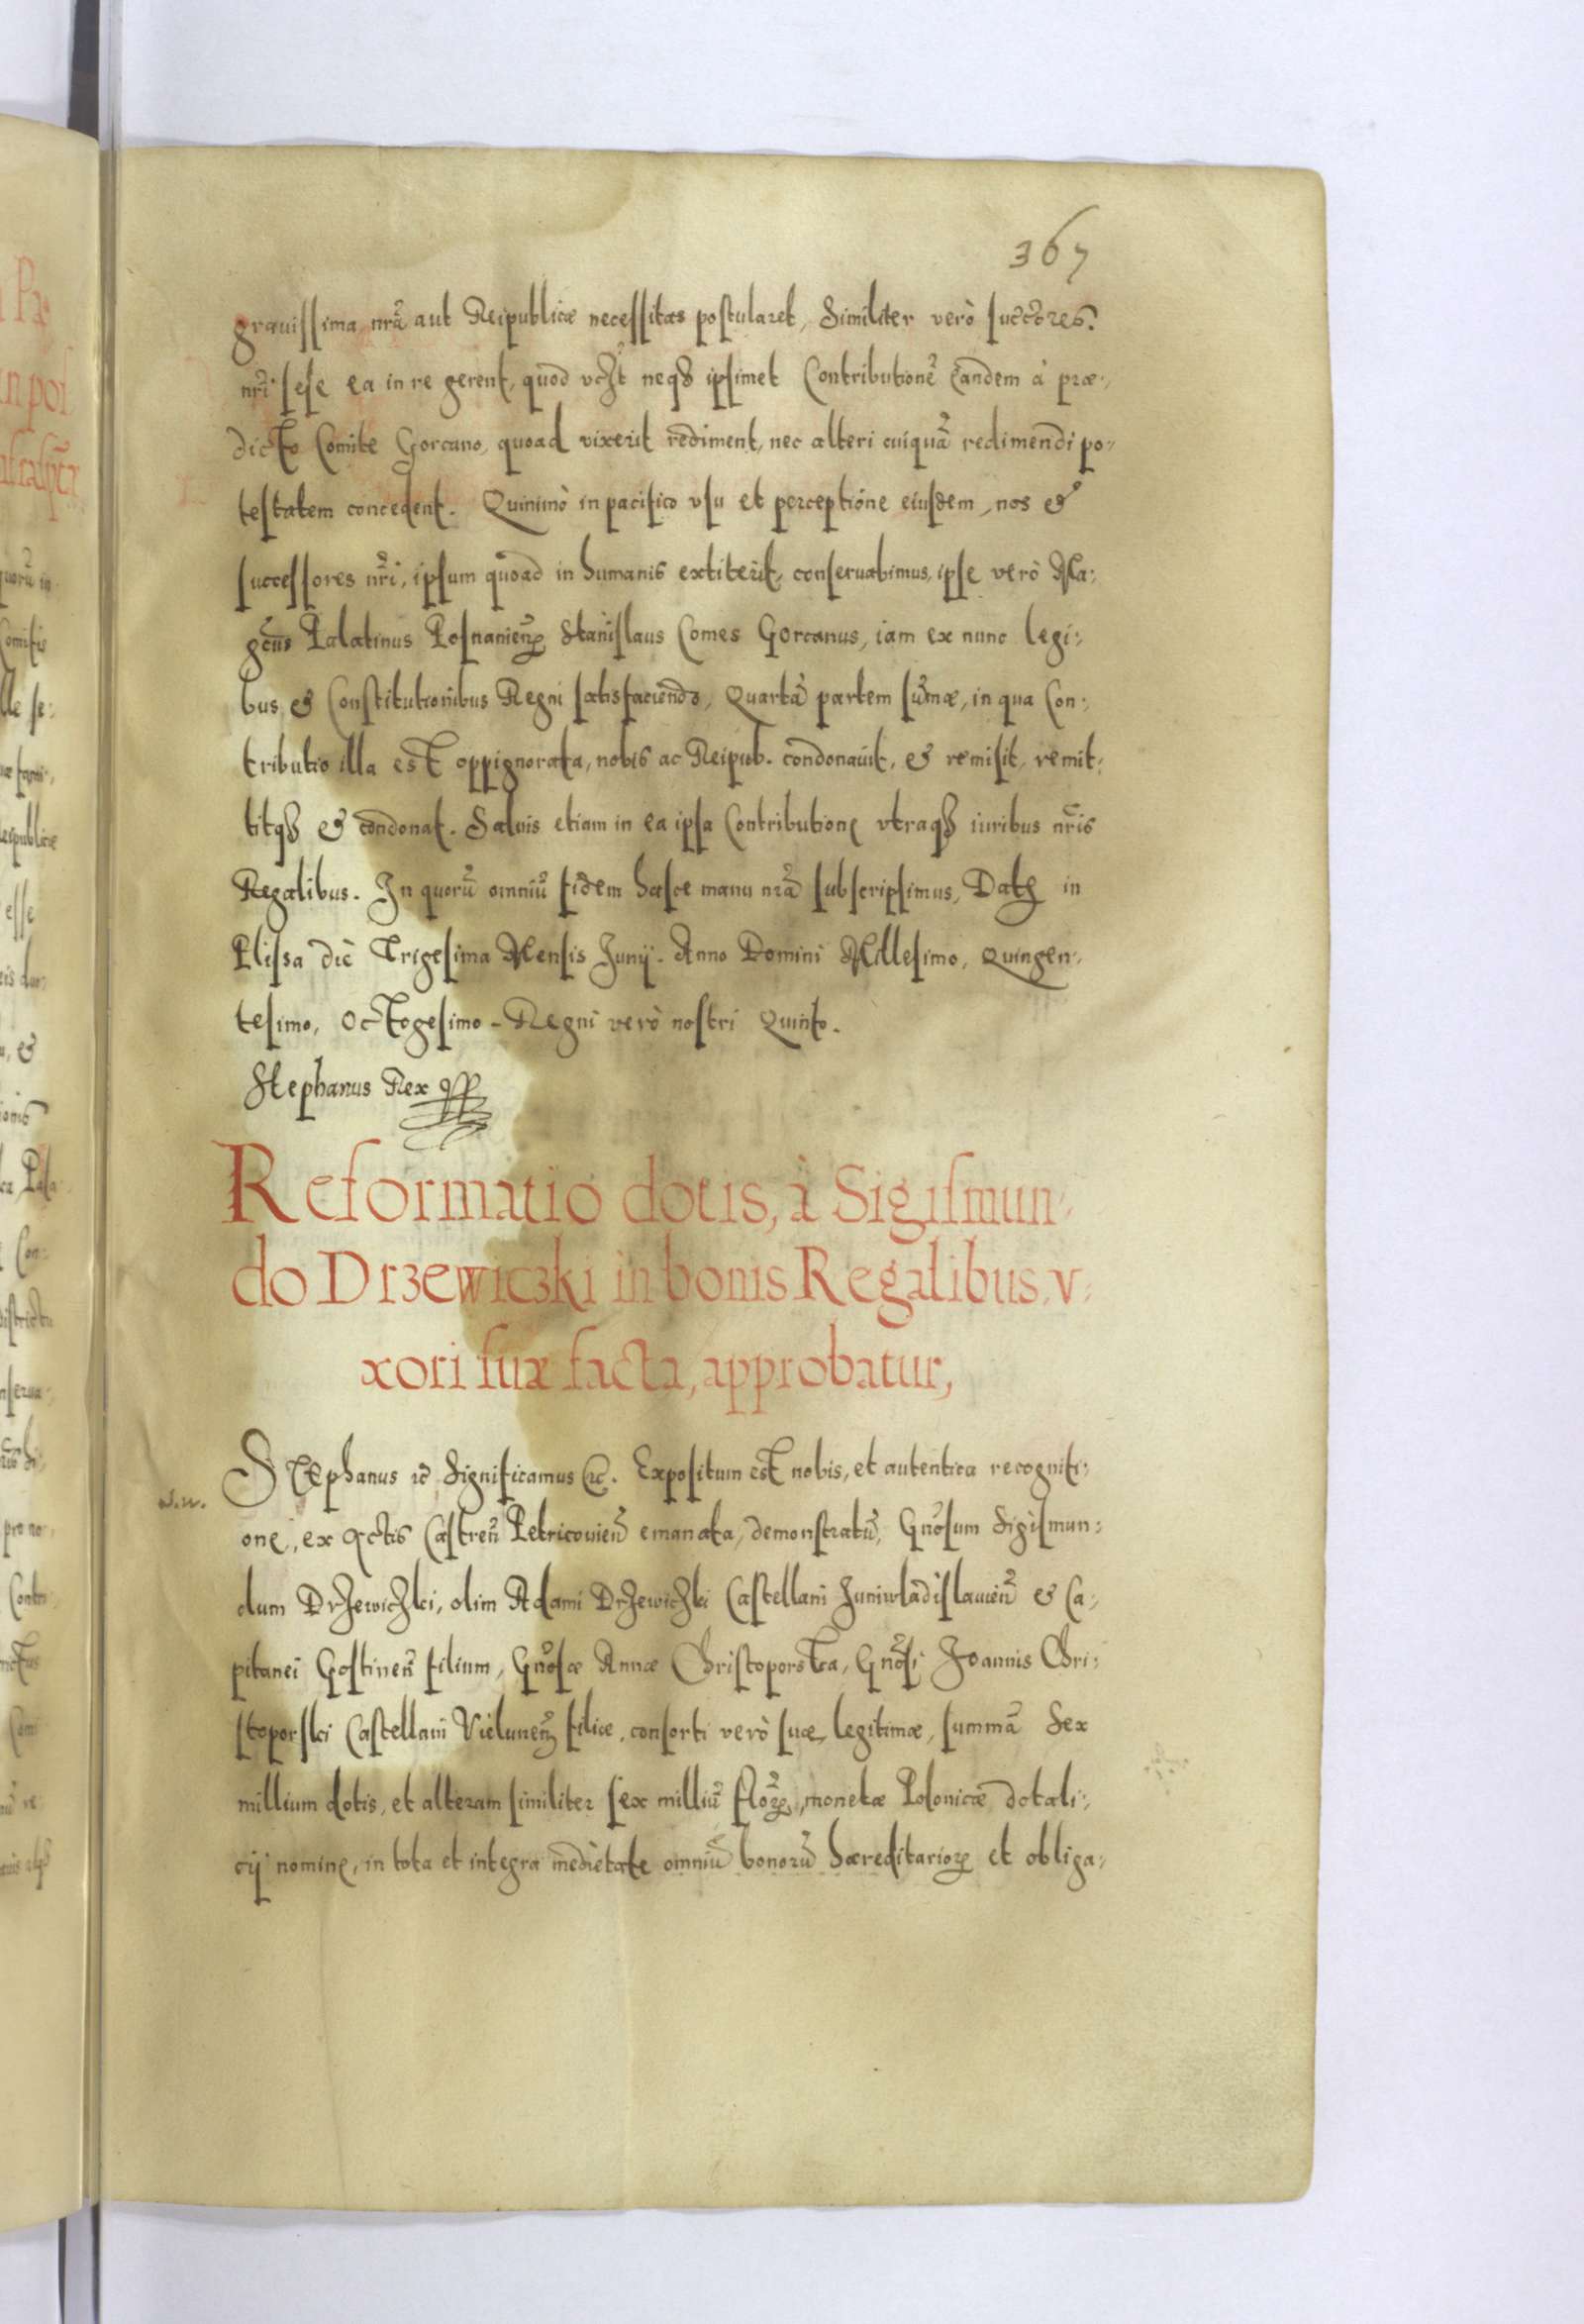 367
grauissima nrã aut Reipublicæ necessitas postularet, Similiter verò succ̃ores
nrĩ sese ea in re gerent, quod neq3 ipsimet Contributionẽ eandem à præ:
dicto Comite Gorcano, quoad vixerit rediment, nec alteri cuiquã redimendi po:
testatem concedent. Quinimò in pacifico vsu et perceptione eiusdem, nos &
successores nrĩ, ipsum quoad in humanis extiterit, conseruabimus, ipse verò Ma:
gcũs Palatinus Posnanien̄ Stanislaus Comes Gorcanus, iam ex nunc legi:
bus & Constitutionibus Regni satisfaciendo, Quartã partem sum̃æ, in qua Con:
tributio illa est oppignorata, nobis ac Reipub. condonauit, & remisit, remit:
titq3 & condonat. Saluis etiam in ea ipsa Contributione vtraq3 iuribus nrĩs
Regalibus. In quorũ omniũ fidem hasce manu nrã subscripsimus, Dat̃ in
Plissa die Trigesima Mensis Junij. Anno Domini Millesimo, Quingen:
tesimo, Octogesimo - Regni verò nostri Quinto.
Stephanus Rex
Reformatio dotis, à Sigismun:
do Drzewiczki in bonis Regalibus, v:
xori suæ facta, approbatur,
Stephanus &c̃ Significamus &c. Expositum est nobis, et autentica recogniti:
one, ex Actis Castren̄ Petricouien̄ emanata, demonstratũ, Gnõsum Sigismun:
dum Drzewiczki, olim Adami Drzewiczki Castellani Juniwladislauien̄ & Ca:
pitanei Gostinen̄ filium, Gnõsæ Annæ Christoporska, Gnõsi Joannis Chri:
stoporski Castellani Vielunen̄ filiæ, consorti verò suæ legitimæ, summã Sex
millium dotis, et alteram similiter sex milliũ flor̃, monetæ Polonicæ dotali:
cij nomine, in tota et integra medietate omniũ bonorũ hæreditarior̃ et obliga: